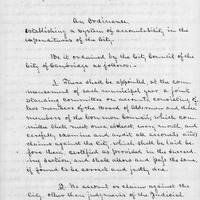 An Ordinance
Establishing a system of accountability in the
expenditures of the City.
Be it ordained by the City Council of the
City of as follows:
1. There shall be appointed, at the com-
mencement of each municipal year a joint
Standing Committee on accounts, consisting of
two members of the Board of Aldermen and three
members of the Common Council, which com-
mittee shall meet once at least every month, and
carefully examine and audit all accounts and
claims against the City, which shall be laid be-
fore them certified as provided in the
ing section, and shall allow and pass the same
if found to be correct and justly due.
2. No account or claim against the
City, other than judgments of the Judicial